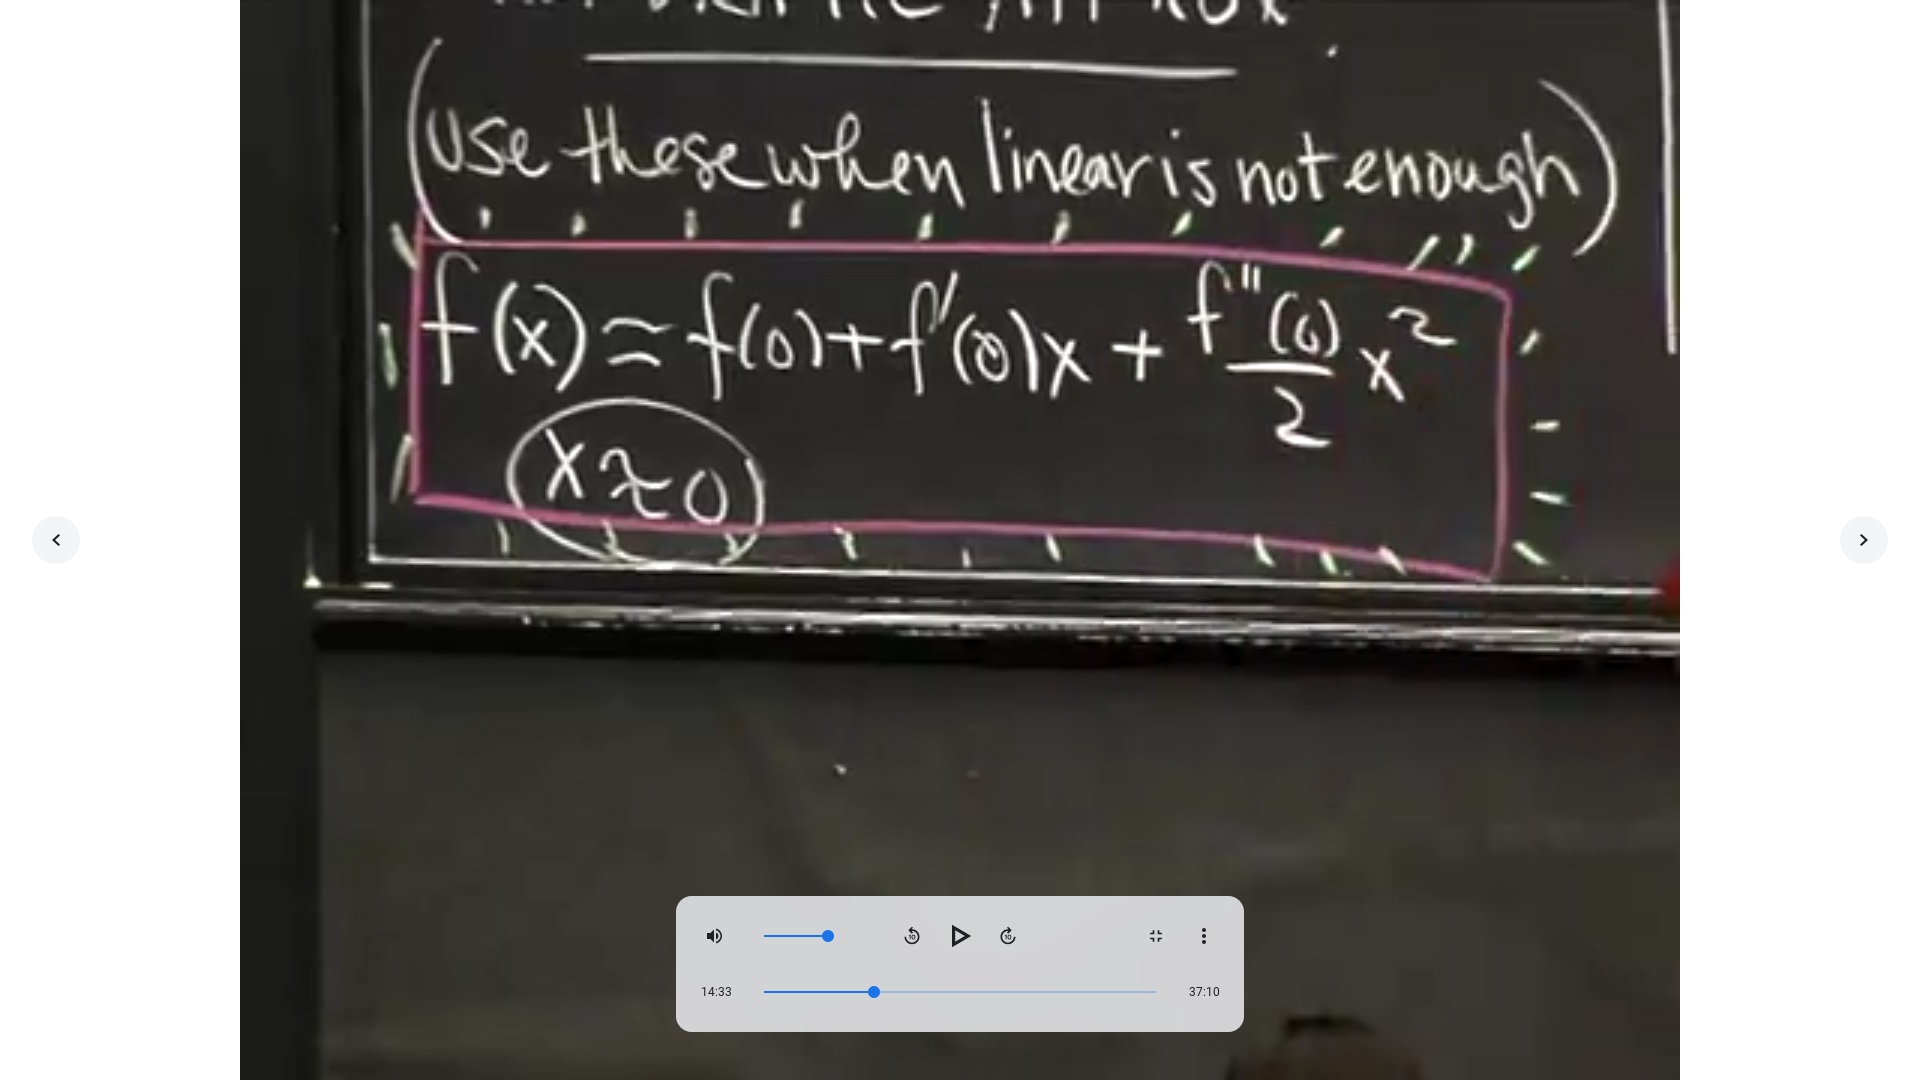 (Use these when linear is not enough)
f(x) ≈ f(0) + f'(0)x + f''(0)/2 x²
x ≈ 0
10
10
14:33
37:10